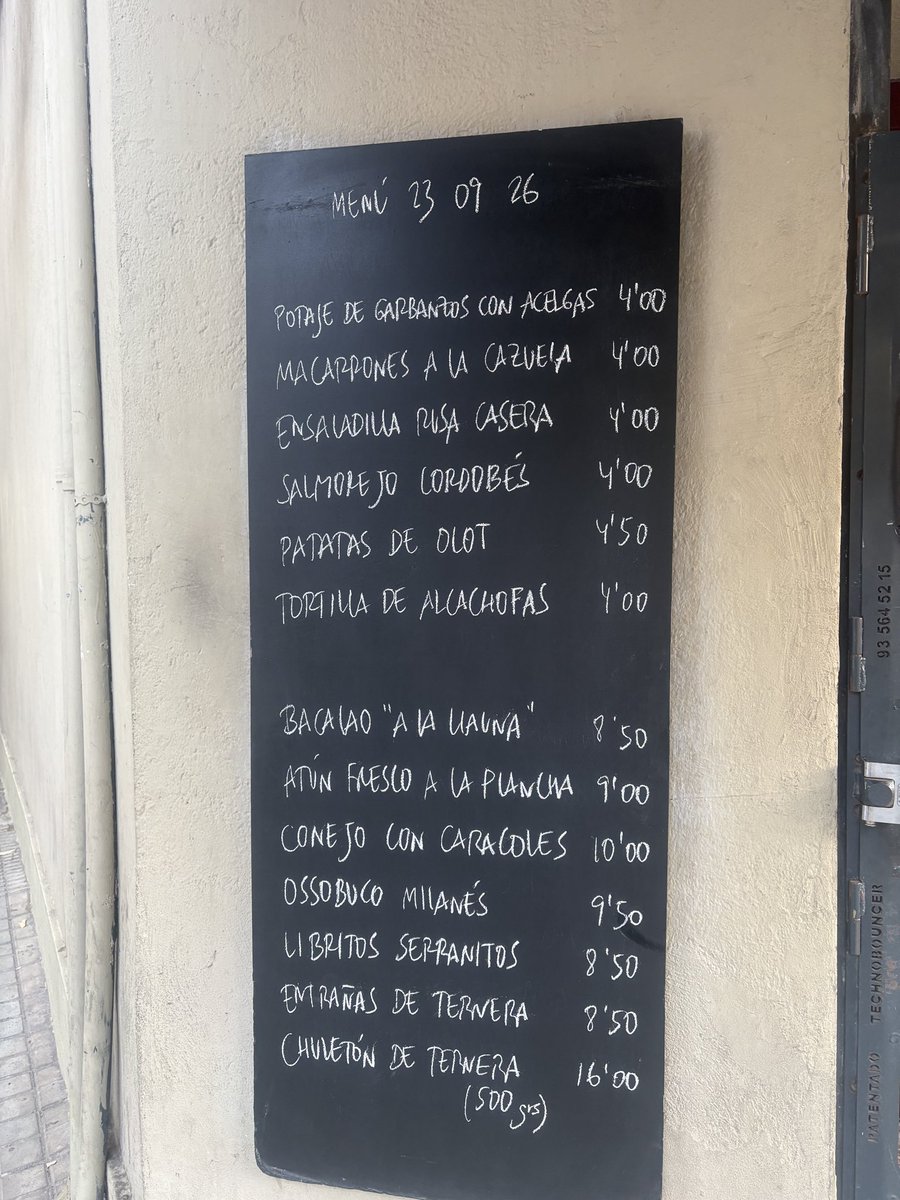 MENÚ 23 09 26
POTAJE DE GARBANZOS CON ACELGAS 4'00
MACARRONES A LA CAZUELA 4'00
ENSALADILLA RUSA CASERA 4'00
SALMOREJO CORDOBÉS 4'00
PATATAS DE OLOT 4'50
TORTILLA DE ALCACHOFAS 4'00
BACALAO "A LA LLAUNA" 8'50
ATÚN FRESCO A LA PLANCHA 9'00
CONEJO CON CARACOLES 10'00
OSSOBUCO MILANÉS 9'50
LIBRITOS SERRANITOS 8'50
ENTRAÑAS DE TERNERA 8'50
CHULETÓN DE TERNERA 16'00
(500 grs)
93 564 52 15
PATENTADO TECHNOBOUNCER